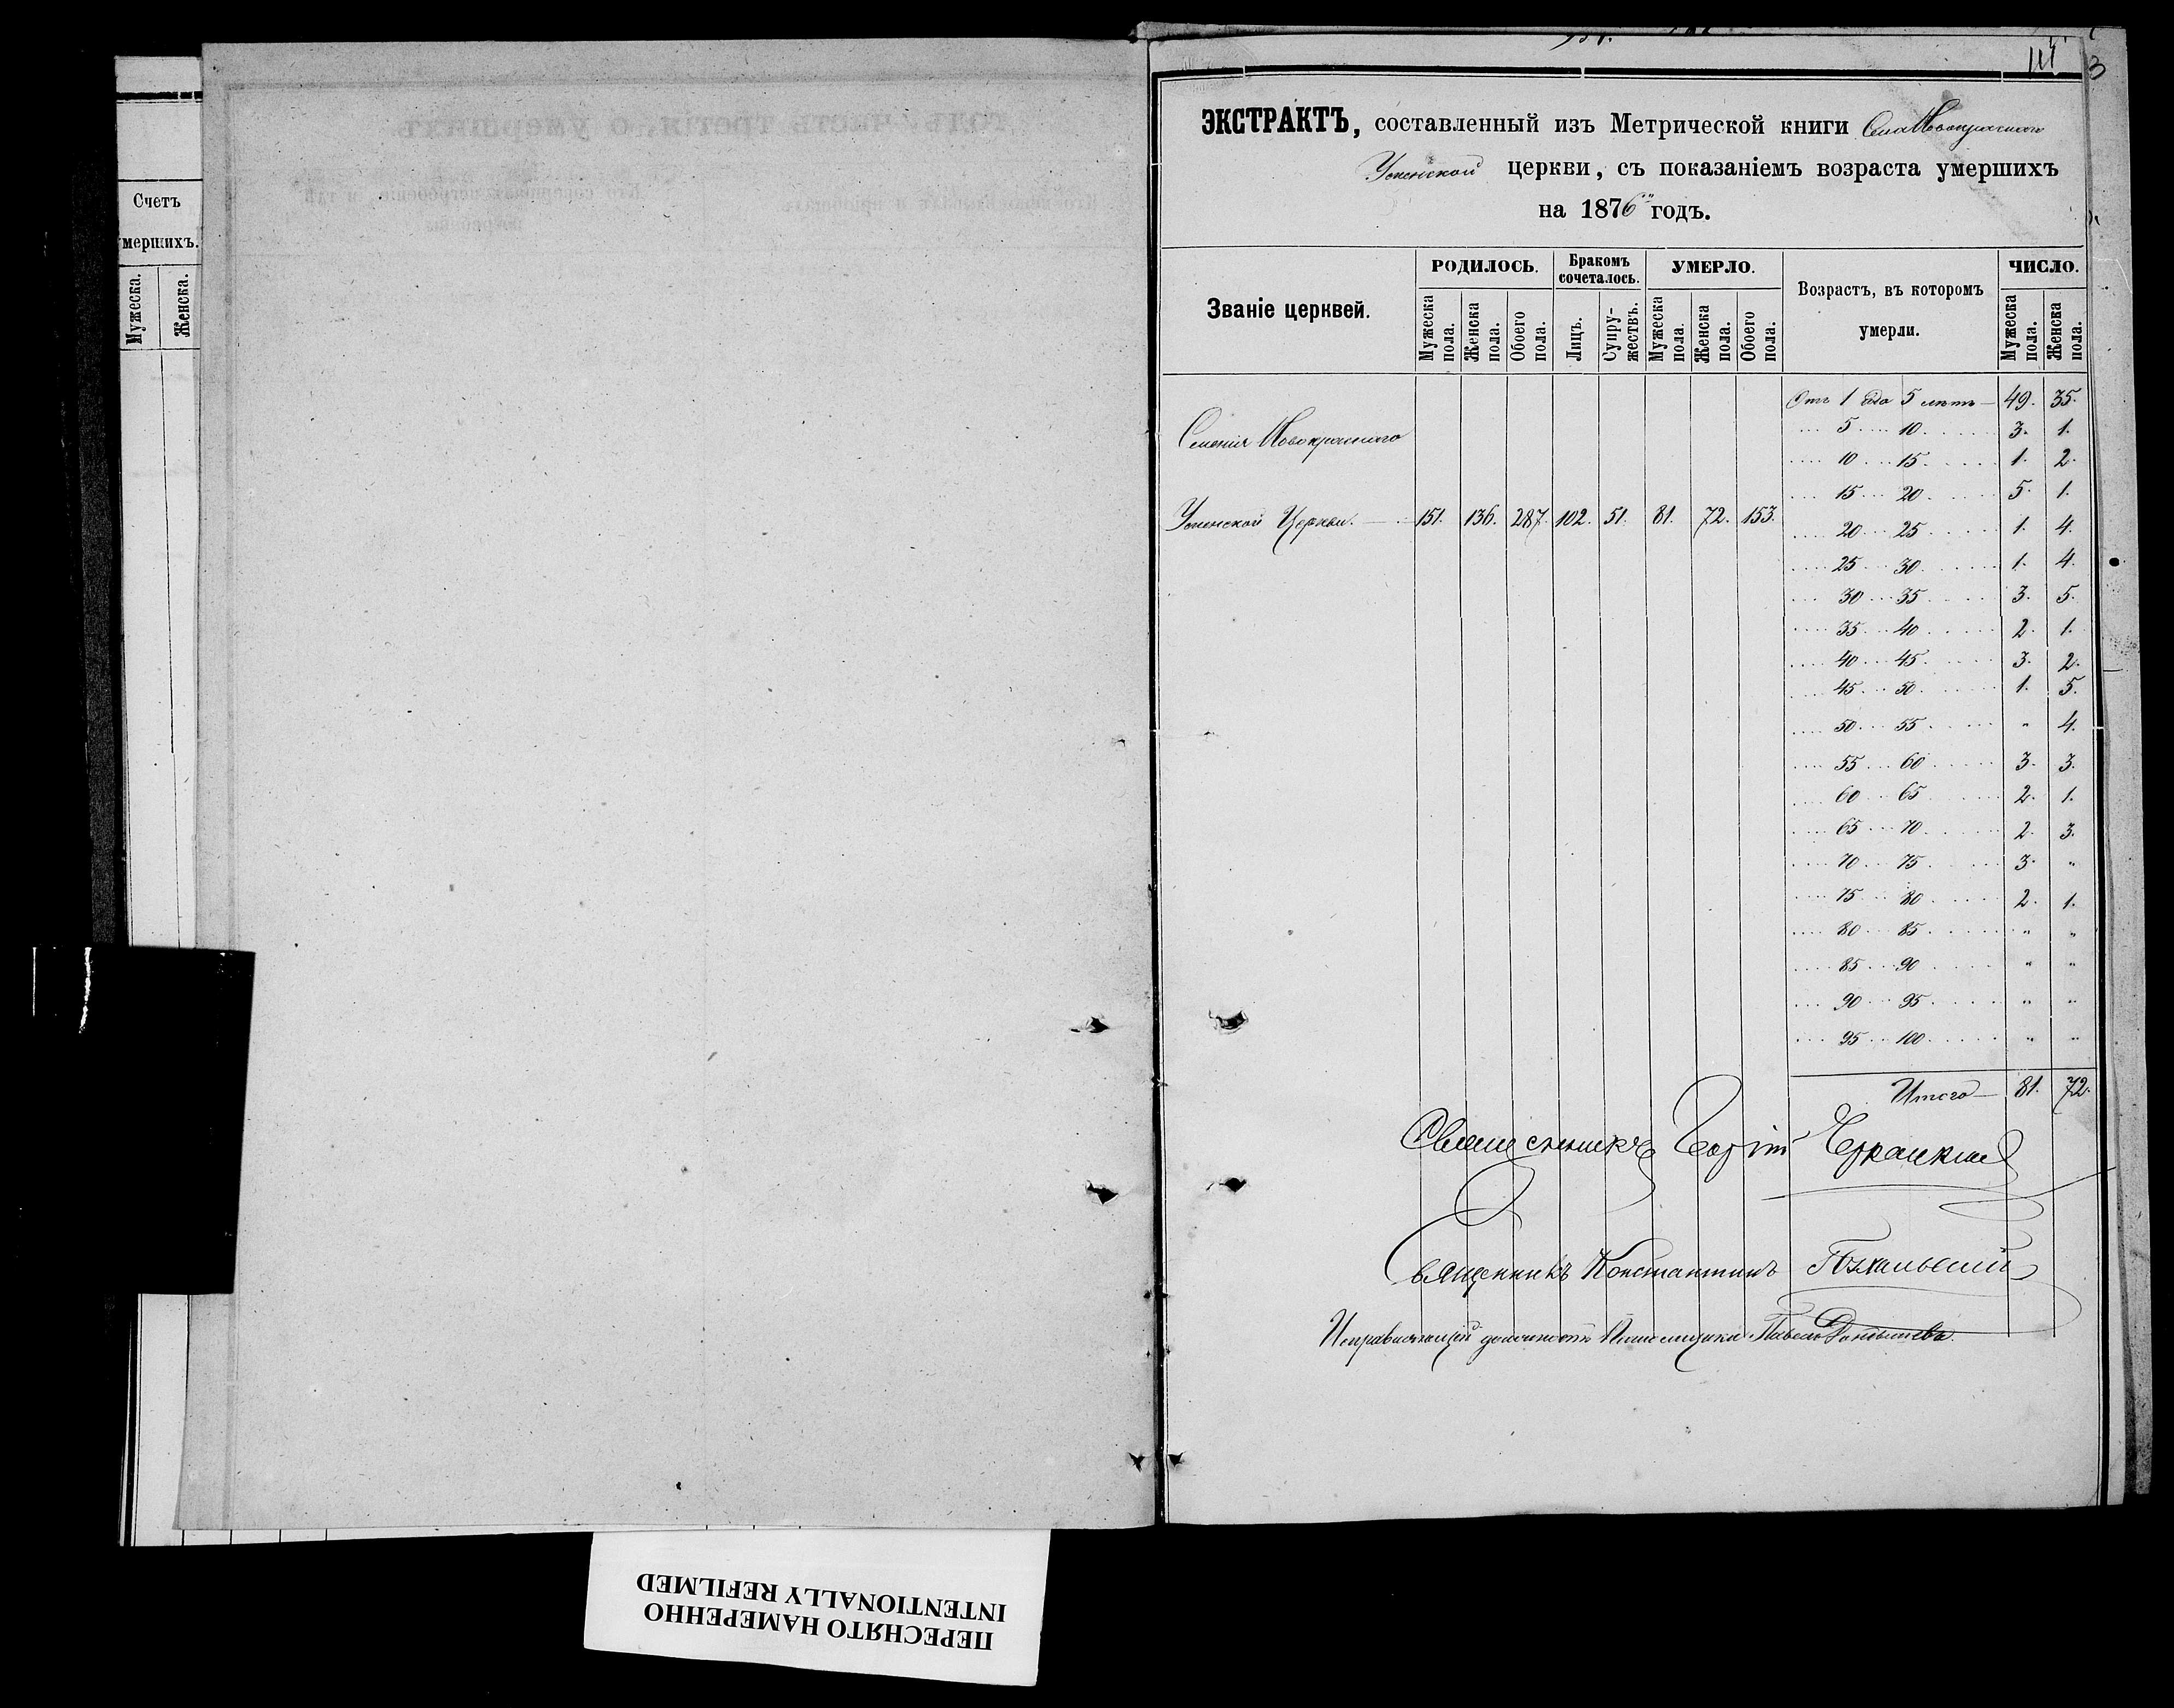 Счетъ
умершихъ.
Мужеска.
Женска.
3
ЭКСТРАКТЪ, составленный изъ Метрической книги Села
Успенской церкви, съ показаніемъ возраста умершихъ
на 1876 годъ.
Званіе церквей.
РОДИЛОСЬ.
Бракомъ сочеталось.
УМЕРЛО.
Возрастъ, въ которомъ умерли.
ЧИСЛО.
Мужеска пола.
Женска пола.
Обоего пола.
Лицъ.
Супружествъ.
Мужеска пола.
Женска пола.
Обоего пола.
Мужеска пола.
Женска пола.
Отъ 1 до 5 лѣтъ 49. 35.
5 10 3. 1.
10 15 1. 2.
15 20 5. 1.
Успенской Церкви. 151. 136. 287. 102. 51. 81. 72. 153.
20 25 1. 4.
25 30 1. 4.
30 35 3. 5.
35 40 2. 1.
40 45 3. 2.
45 50 1. 5.
50 55 " 4.
55 60 3. 3.
60 65 2. 1.
65 70 2. 3.
70 75 3. "
75 80 2. 1.
80 85 " "
85 90 " "
90 95 " "
95 100 " "
Итого 81. 72.
Священникъ
Священникъ Константинъ
Исправляющій должность Псаломщика Павелъ
ПЕРЕСНЯТО НАМЕРЕННО
INTENTIONALLY REFILMED